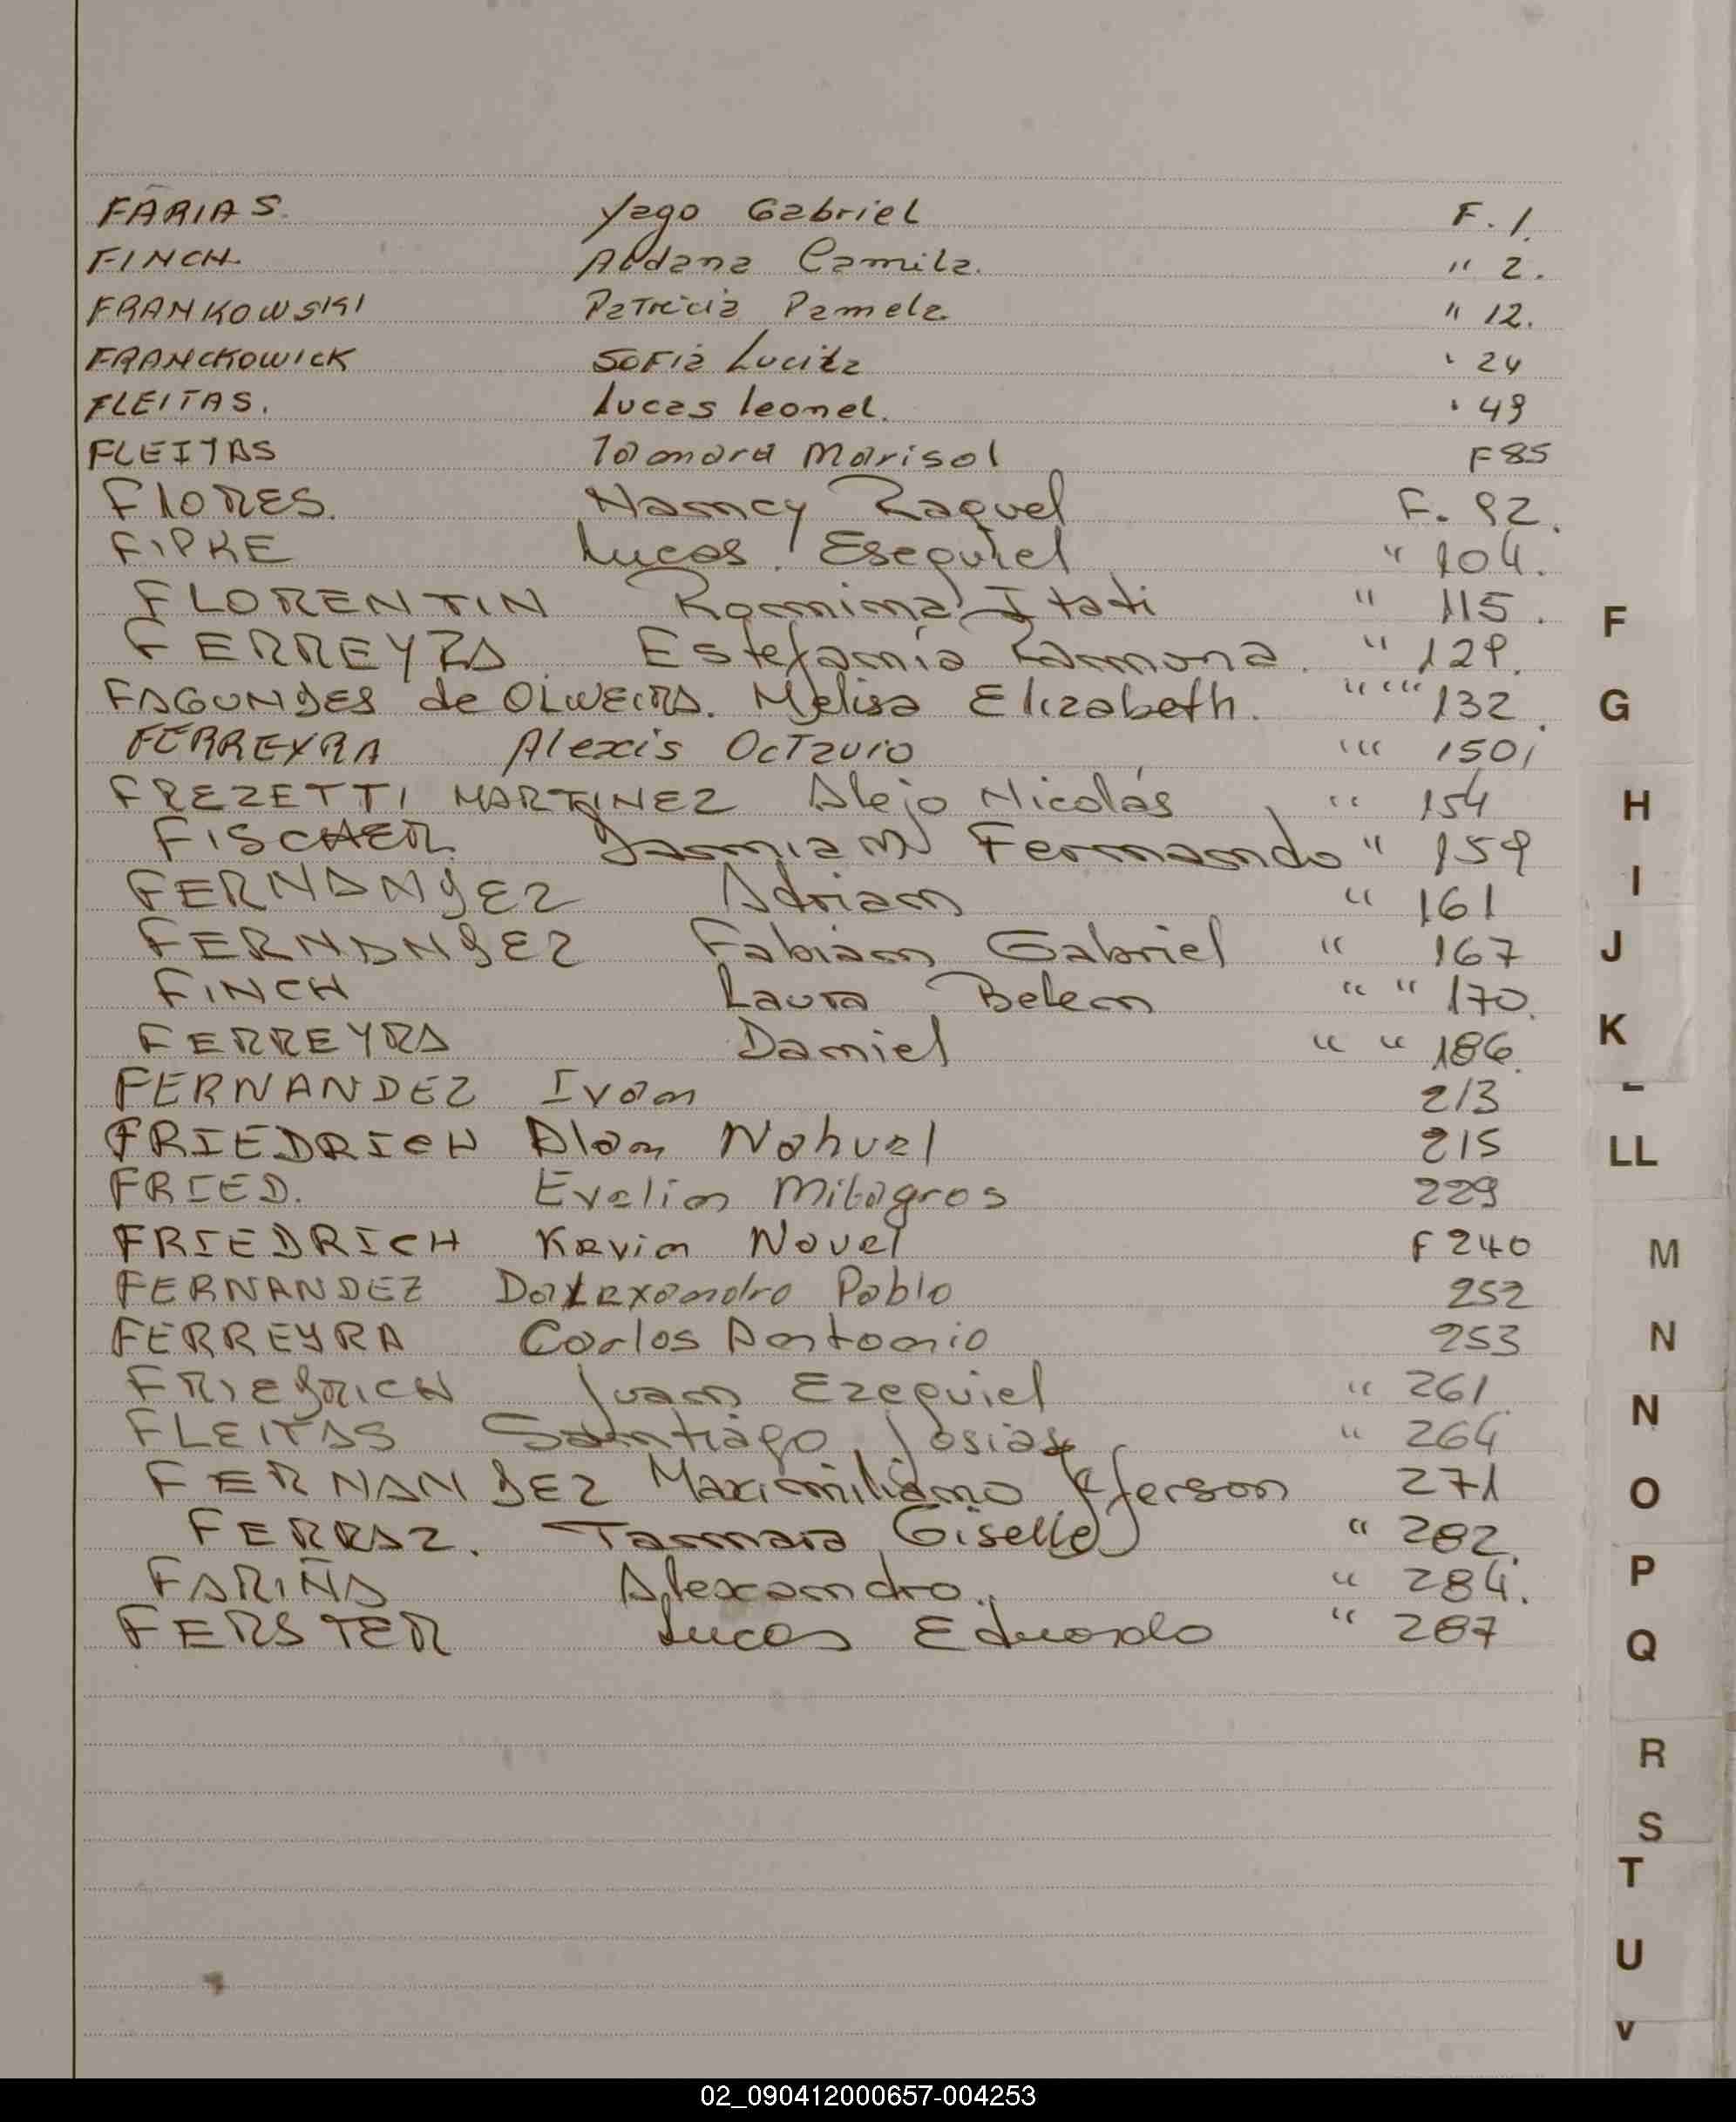 FARIAS. Yago Gabriel F. 1.
FINCH. Aldana Camila. " 2.
FRANKOWSKI Patricia Pamela " 12.
FRANCKOWICK Sofia Lucila ' 24
FLEITAS. Lucas Leonel. ' 49
FLEITAS Tamara Marisol F 85
FLORES. Nancy Raquel F. 92.
FIPKE Lucas Esequiel " 104.
FLORENTIN Romina Itati " 115.
FERREYRA Estefamía Ramona. " 129.
FAGUNDES de OLIVEIRA. Melisa Elizabeth. " " 132.
FERREYRA Alexis Octavio " 150
FREZETTI MARTINEZ Alejo Nicolás " 154
FISCHER Damian Fernando " 159
FERNANDEZ Adrian " 161
FERNANDEZ Fabián Gabriel " 167
FINCH Laura Belen " " 170.
FERREYRA Daniel " " 186.
FERNANDEZ Ivan 213
FRIEDRICH Alan Nahuel 215
FRIED. Evelin Milagros 229
FRIEDRICH Kevin Navel F 240
FERNANDEZ Pablo 252
FERREYRA Carlos Antonio 253
FRIEDRICH Juan Ezequiel " 261
FLEITAS Santiago Josias " 264
FERNANDEZ Maximiliano Jefferson 271
FERRAZ. Tamara Giselle " 282.
FARIÑA Alexandro. " 284.
FERSTER Lucas Eduardo " 287
F
G
H
I
J
K
L
LL
M
N
N
O
P
Q
R
S
T
U
V
02_090412000657-004253